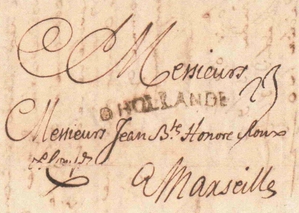 Messieurs
23
D HOLLANDE
Messieurs Jean Bte Honore Roux
A Marseille